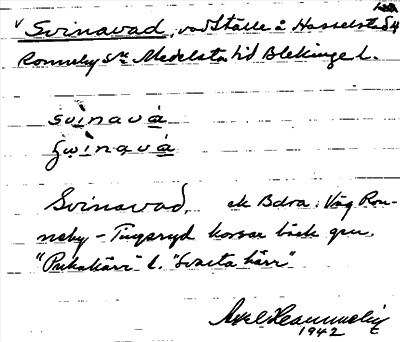 √ Svinavad, vadställe å Hasselstad
Ronneby sn Medelsta hd Blekinge l.
svìnavá
Svinavad, ek Bdra: Väg Ron-
neby - Tingsryd korsar bäck gen.
"Pukakärr" l. "Svarta kärr"
1942